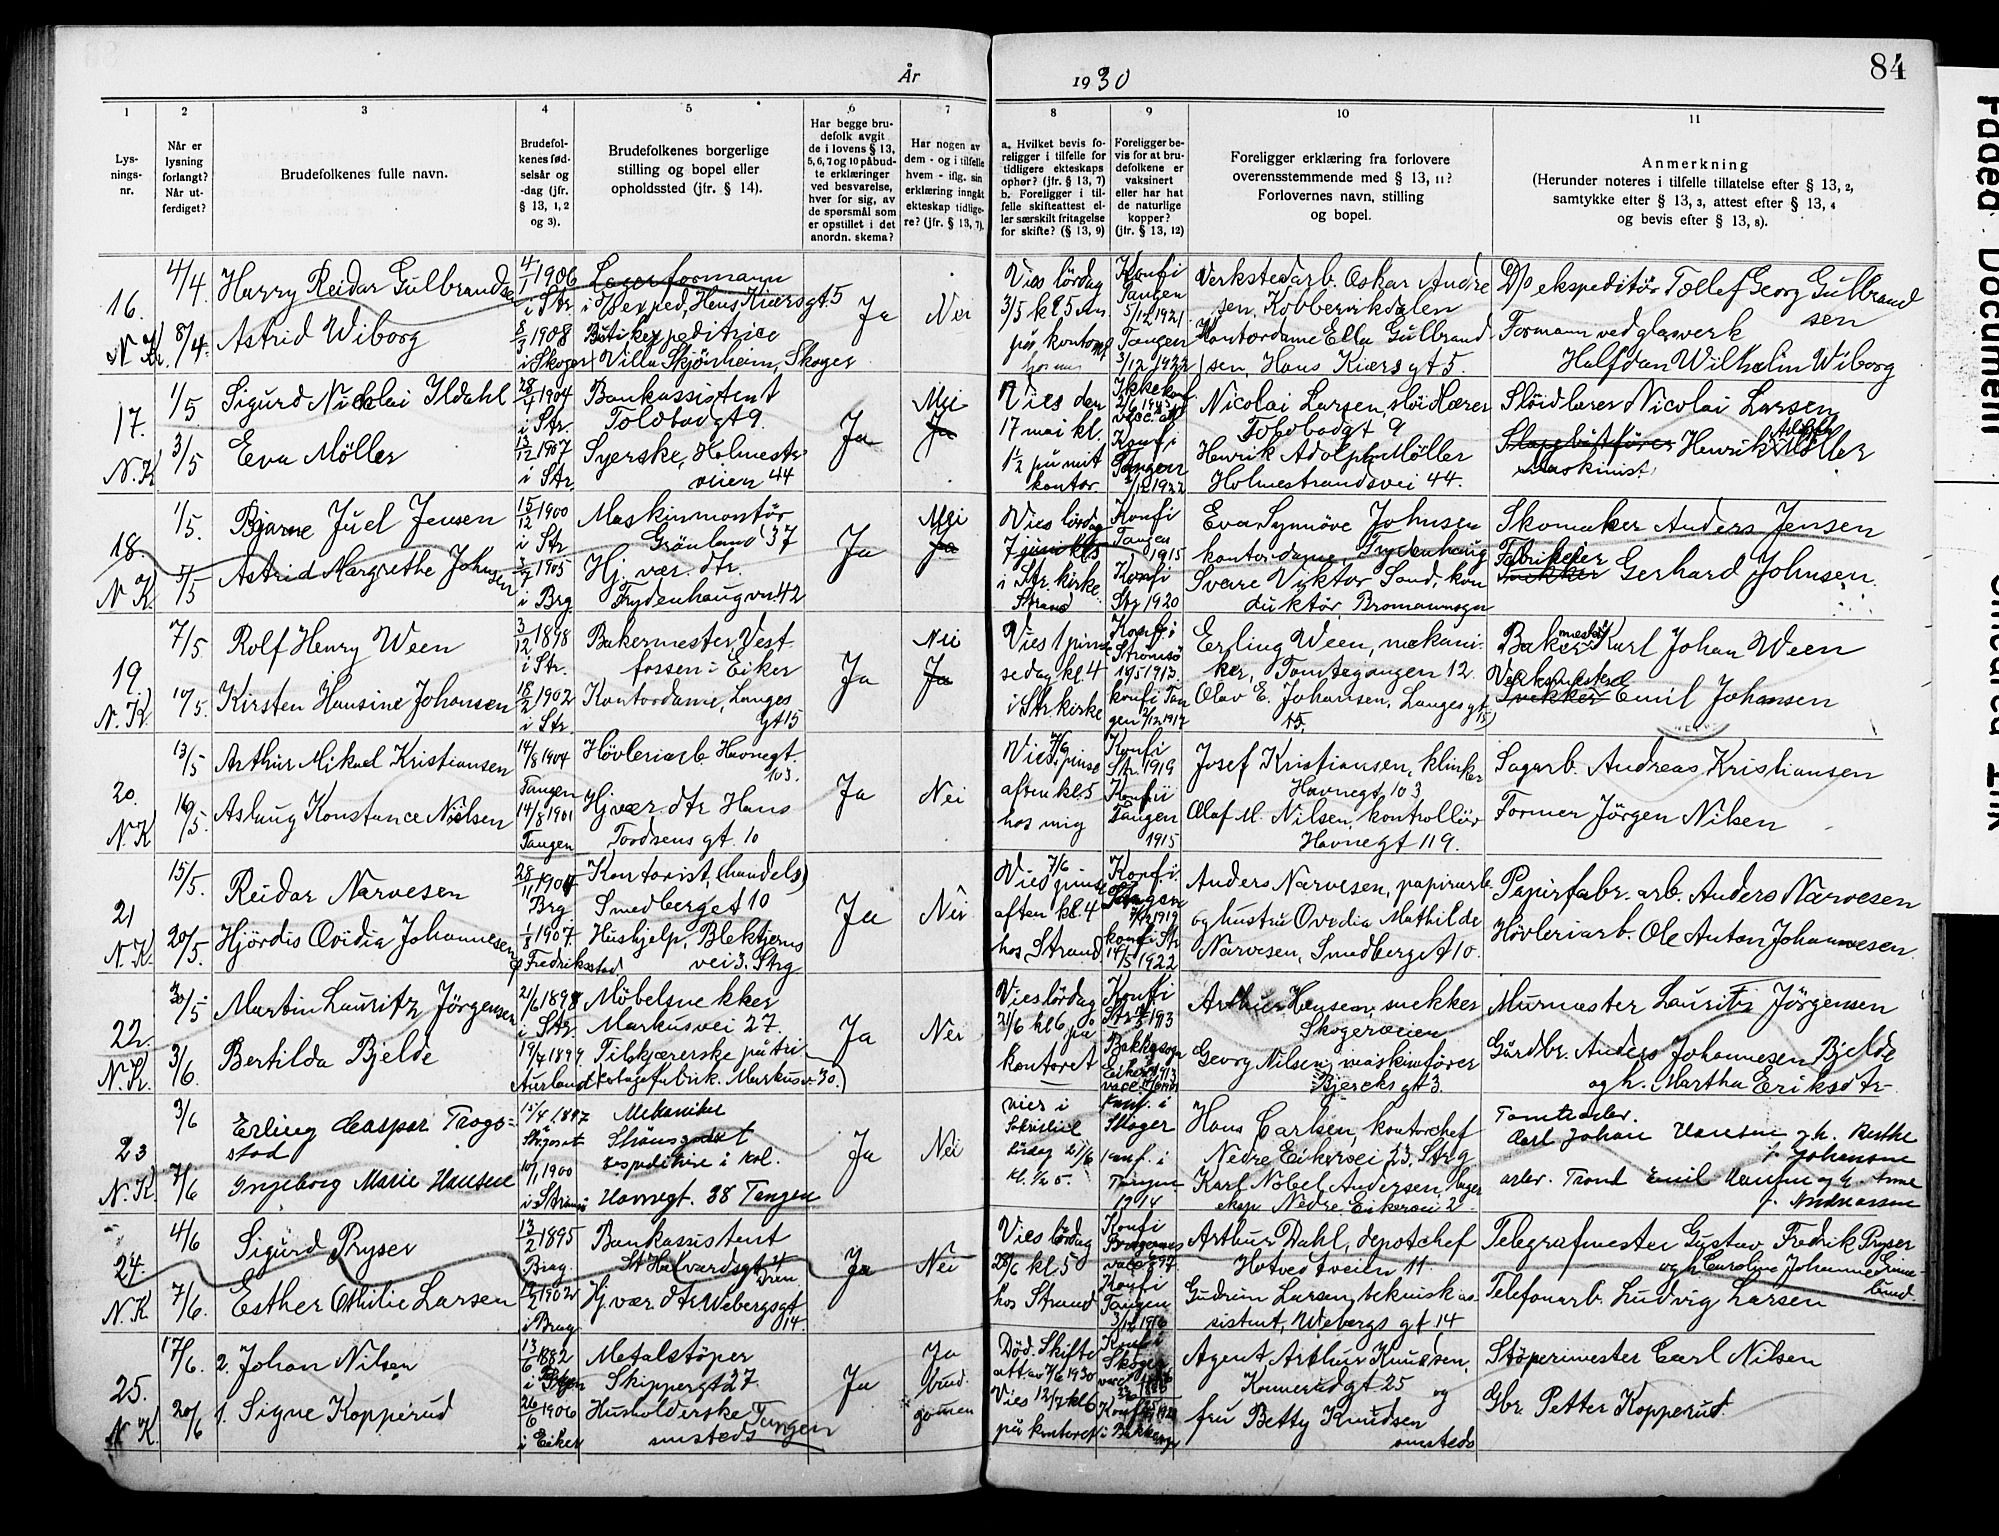 År 1930
84
1
2
3
4
5
6
7
8
9
10
11
Lys-
nings-
nr.
Når er
lysning
forlangt?
Når ut-
ferdiget?
Brudefolkenes fulle navn.
Brudefol-
kenes fød-
selsår og
-dag (jfr.
§ 13, 1, 2
og 3).
Brudefolkenes borgerlige
stilling og bopel eller
opholdssted (jfr. § 14).
Har begge bru-
defolk avgit
de i lovens § 13,
5, 6, 7 og 10 påbud-
te erklæringer
ved besvarelse,
hver for sig, av
de spørsmål som
er opstillet i det
anordn. skema?
Har nogen av
dem - og i tilfelle
hvem - iflg. sin
erklæring inngått
ekteskap tidlige-
re? (jfr. § 13, 7).
a. Hvilket bevis fo-
religger i tilfelle for
tidligere ekteskaps
ophør? (jfr. § 13, 7)
b. Foreligger i til-
felle skifteattest el-
ler særskilt fritagelse
for skifte? (§ 13, 9)
Foreligger be-
vis for at bru-
defolkene er
vaksinert
eller har hat
de naturlige
kopper?
(jfr. § 13, 12)
Foreligger erklæring fra forlovere
overensstemmende med § 13, 11?
Forlovernes navn, stilling
og bopel.
Anmerkning
(Herunder noteres i tilfelle tillatelse efter § 13, 2,
samtykke efter § 13, 3, attest efter § 13, 4
og bevis efter § 13, 8).
16.
N.K.
4/4
8/4.
Harry Reidar Gulbrandsen
Astrid Wiborg
4/1 1906
i Str
8/3 1908
i Skoger
Lagerformann
Hans Kiærsgt 5
Villa Skjönheim, Skoger
Ja
Nei
Vies lördag
3/5 kl. 5 em
på kontoret
hos mig
Konfi
Tangen
5/12 1921
Tangen
3/12 1922
Verkstedarb. Oskar Andre
sen, Kobbervikdalen
Kontordame Ella Gulbrand
sen, Hans Kiærs gt 5.
ekspeditör Tollef Georg Gulbrand
sen
Formann ved glasverk
Halfdan Wilhelm Wiborg
17.
N.K
1/5
3/5
Sigurd Nicolai Ildahl
Eva Möller
28/4 1904
i Str.
13/12 1907
i Str.
Bankassistent
Tolbodgt 9.
Syerske, Holmestr
veien 44
Ja
Nei
Ja
Vies den
17 mai kl.
1 1/2 på mit
kontor.
Konfi
Tangen
1922
Nicolai Larsen, slöidlærer
Tolbodgt 9
Henrik Adolph Möller
Holmestrandsvei 44.
Slöidlærer Nicolai Larsen
Henrik Adolph Möller
maskinist
18.
N.K.
1/5.
3/5
Bjarne Juel Jensen
Astrid Margrethe Johnsen
15/12 1900
i Str
3/7 1905
i Brg
Maskinmontör
Grönland 37
Hj. vær. dtr.
Frydenhaugvn 42
Ja
Nei
Ja
Vies lördag
7 juni kl 5
i Str. kirke
Strand
Konfi
Tangen
1915
Konfi
Str 1920
Eva Synnöve Johnsen
kontordame Frydenhaug
Svare Viktor Sand, kon
duktör, Bromannsgn
Skomaker Anders Jensen
Fabrikeier
Gerhard Johnsen.
19
N.K
7/5.
10/5.
Rolf Henry Ween
Kirsten Hansine Johansen
3/12 1898
i Str.
18/2 1902
i Str.
Bakermester, Vest
fossen i Eiker
Kontordame, Langes
gt 15
Ja
Nei
Ja
Vies 1 pin
sedag kl. 4
i Str kirke
Konfi
Strömsö
1913.
Konfi Tan
gen 1917
Erling Ween, mekani-
ker, Tomtegangen 12.
Olav E. Johansen, Langes gt
15.
Bakermester Karl Johan Ween
Verksmester
Snekker Emil Johansen
20.
N.K
13/5
16/5.
Arthur Mikael Kristiansen
Aslaug Konstance Nilsen
14/8 1904
Tangen
14/8 1901
Tangen
Hövleriarb. Havnegt.
103.
Hj. vær. dtr Hans
Tordsens gt. 10
Ja
Nei
7/6
Vies pinse
aften kl. 5
hos mig
Konfi
Str. 1919
Konfi i
Tangen
1915
Josef Kristiansen, klinker
Havnegt. 103
Olaf M. Nilsen, kontrollör
Havnegt 119.
Sagarb. Andreas Kristiansen
Former Jörgen Nilsen
21
N.K
15/5.
20/5.
Reidar Narvesen
Hjördis Ovidia Johannesen
28/11 1904
Brg.
1/8 1907.
Fredriksstad
Kontorist, (handels)
Smedberget 10
Hushjelp, Blektjerns
vei 3. Strg
Ja
Nei
7/6
Vies pinse
aften kl. 4
hos Strand
Konfi.
Tangen
1919
Konfi Str
14/5 1922
Anders Narvesen, papirarb.
og hustru Ovedia Mathilde
Narvesen, Smedberget 10.
Papirfabr. arb. Anders Narvesen
Hövleriarb. Ole Anton Johannesen.
22.
N.K.
30/5
3/6.
Martin Lauritz Jörgensen
Bertilda Bjelde
21/6 1898
i Str.
19/7 1899
Aurland
Möbelsnekker
Markusvei 27.
Tilskjærerske på tri-
kotagefabrik. Markusv 30.)
Ja
Nei
Vies lördag
21/6 kl 6 på
kontoret
Konfi
Str
1913
Arthur Hansen, snekker
Skogerveien
Georg Nilsen, maskinförer
Bjercks gt 3.
Murmester Lauritz Jörgensen
Gårdbr. Anders Johannesen Bjelde
og h. Martha Eriksdtr
23
N.K.
3/6
7/6
Erling Caspar Trogs-
stad
Ingeborg Marie Hansen
15/4 1897
10/1 1900
i Strömsö
Mekaniker
Ekspeditrise i kol.
Havnegt. 38 Tangen
Ja
Nei
Vies i
Sakristiet
Lördag 21/6
kl. 1/2 5.
Konf. i
Skoger
Konf. i
Tangen
1914
Hans Carlsen, kontorchef
Nedre Eikervei 23. Strg
Karl Nobel Andersen, lager
eksp Nedre Eikervei 2
Tomtearb.
Carl Johan Hansen og h. Berthe
f. Johansen
arb. Trond Emil Hansen og h. Anne
f. Andreassen
24.
N.K.
4/6
7/6.
Sigurd Pryser
Esther Othilie Larsen
13/2 1895
Brag.
1902
i Brag
Bankassistent
St Halvardsgt 4
Dram
Hj vær dtr Webergsgt
14.
Ja
Nei
Vies lördag
28/6 kl. 5
hos Strand
Konfi
Bragernes
Konfi
Tangen
3/12 1916
Arthur Dahl, depotchef
Hotvedtveien 11.
Gudrun Larsen, teknisk as-
sistent, Webergs gt 14
Telegrafmester Gustav Fredrik Pryser
og h. Caroline Johanne
lund.
Telefonarb. Ludvig Larsen
25.
N.K.
17/6.
20/6
2. Johan Nilsen
1. Signe Kopperud
13/6 1882
26/6 1906
i Eiker
Metalstöper
Skippergt 27
Husholderske Tangen
smsteds
Ja
Ja
brud
gommen
Död. Skifte
att av 7/6 1930
Vies 12/7 kl 6
på kontoret
Konfi
Skoger
Konf.
i Bakke
Agent Arthur Knudsen,
Konnerudgt 25 og
fru Betty Knudsen
smsteds
Stöperimester Carl Nilsen
Gbr. Petter Kopperud.
Faded Document
Smeared Ink